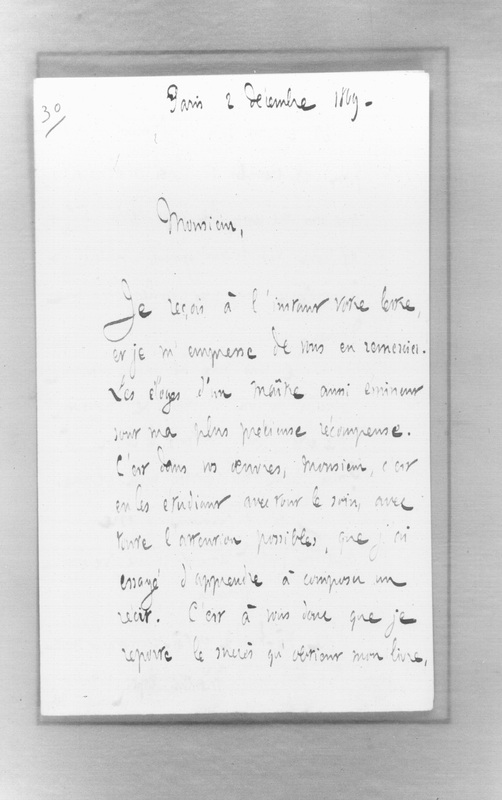 30
Paris 2 décembre 1869-
Monsieur,
Je reçois à l'instant votre lettre,
et je m'empresse de vous en remercier.
Les éloges d'un maître aussi eminent
sont ma plus precieuse récompense.
C'est dans vos œuvres, Monsieur, c'est
en les etudiant avec tout le soin, avec
toute l'attention possibles, que j'ai
essayé d'apprendre à composer un
récit. C'est à vous donc que je
reporte le succès qu'obtient mon livre,